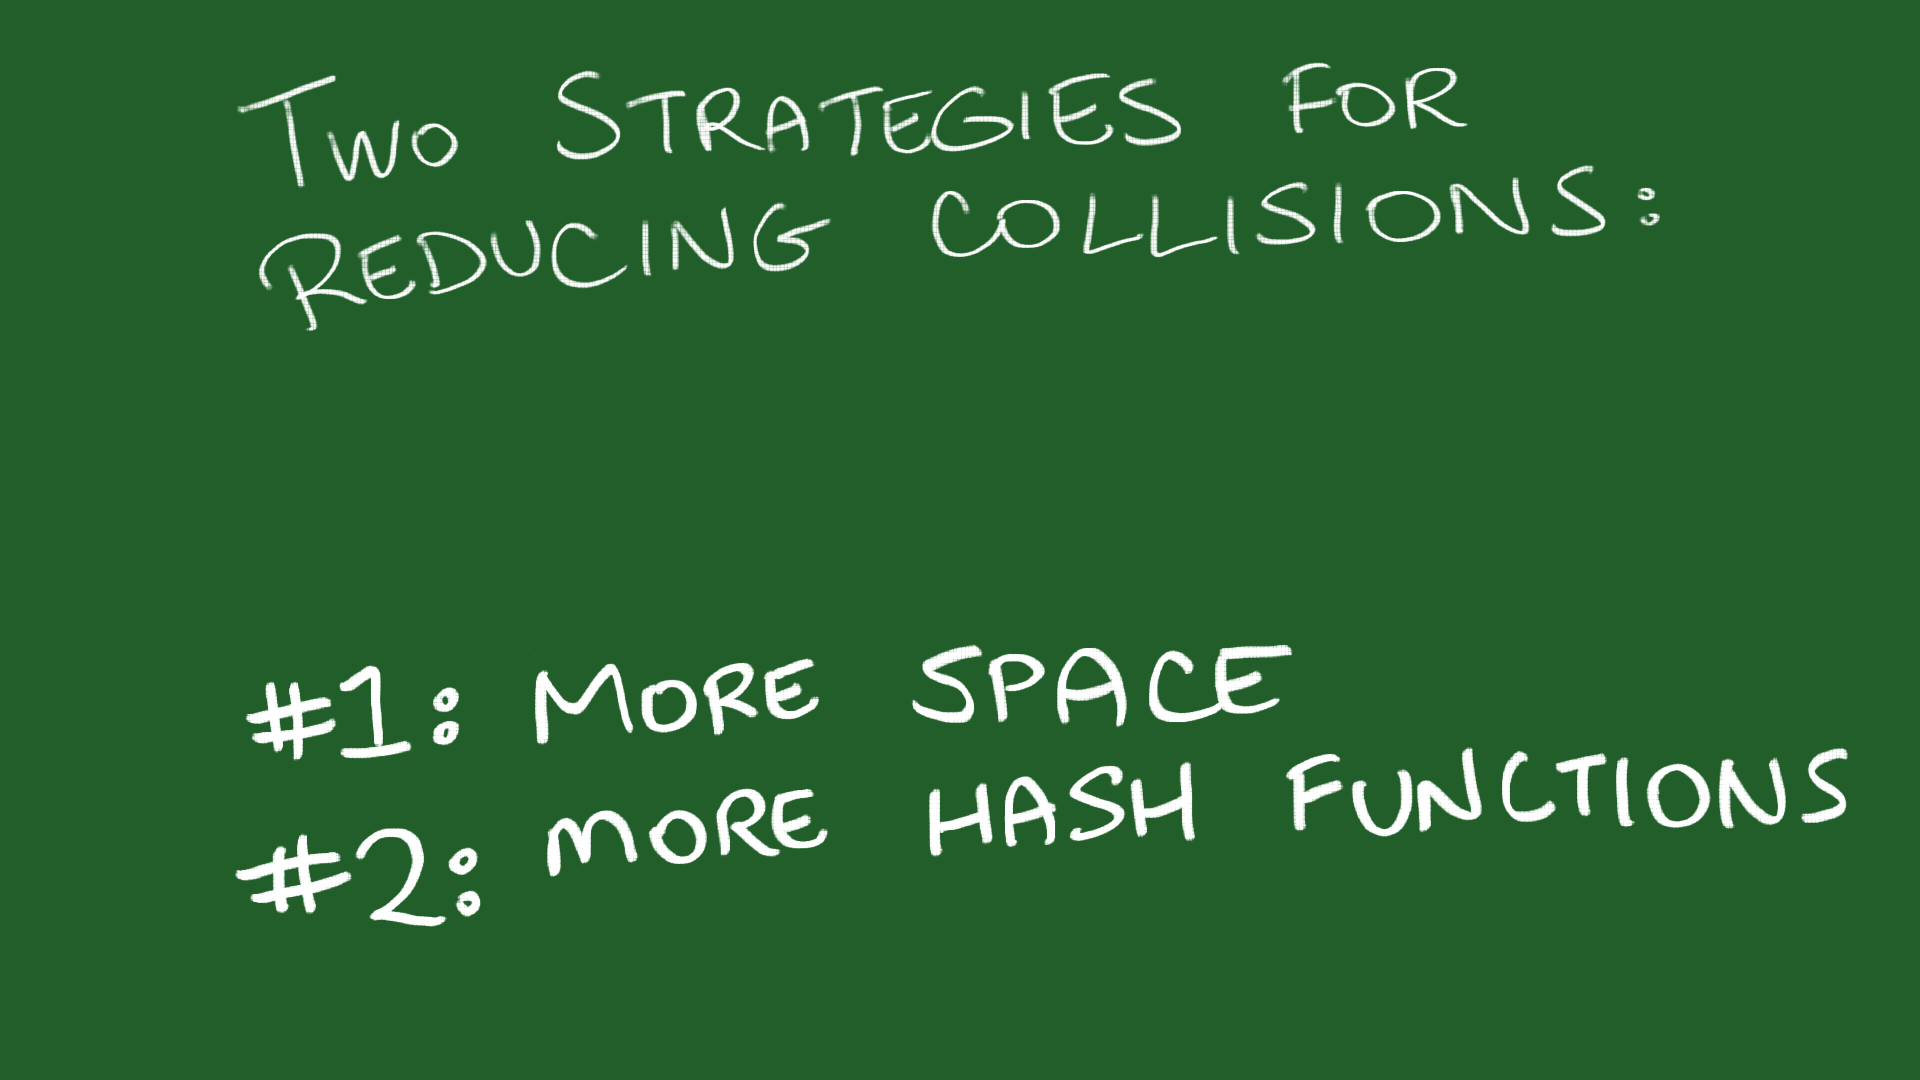 TWO STRATEGIES FOR
REDUCING COLLISIONS:
#1: MORE SPACE
#2: MORE HASH FUNCTIONS